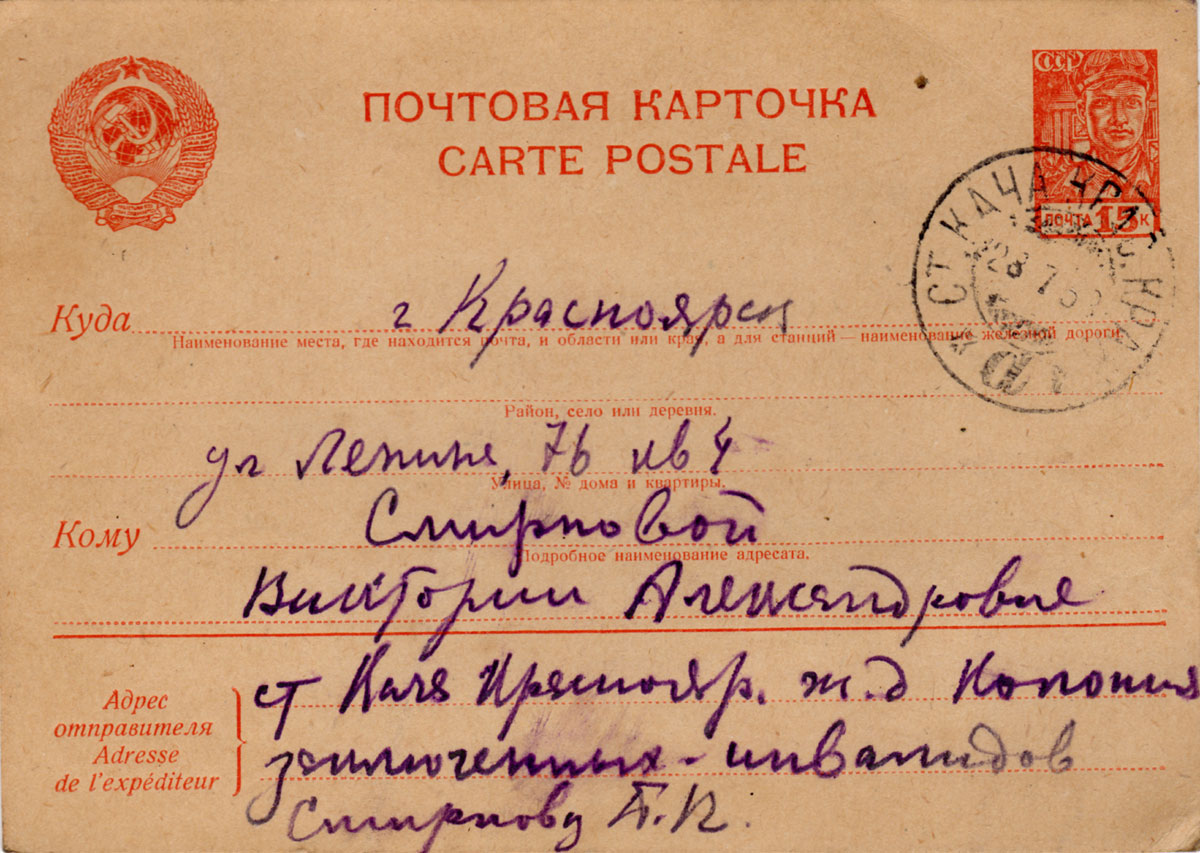 ПОЧТОВАЯ КАРТОЧКА
CARTE POSTALE
СССР
ПОЧТА 15 К
СТ. КАЧА
28 7
Куда г Красноярск
Наименование места, где находится почта, и области или края, а для станций — наименование железной дороги.
Район, село или деревня.
ул Ленина, 76 кв 4
Улица, № дома и квартиры.
Кому Смирновой
Подробное наименование адресата.
Виктории Александровне
Адрес отправителя
Adresse de l'expéditeur
ст Кача Краснояр. ж.д Колония
заключенных-инвалидов
Смирнову